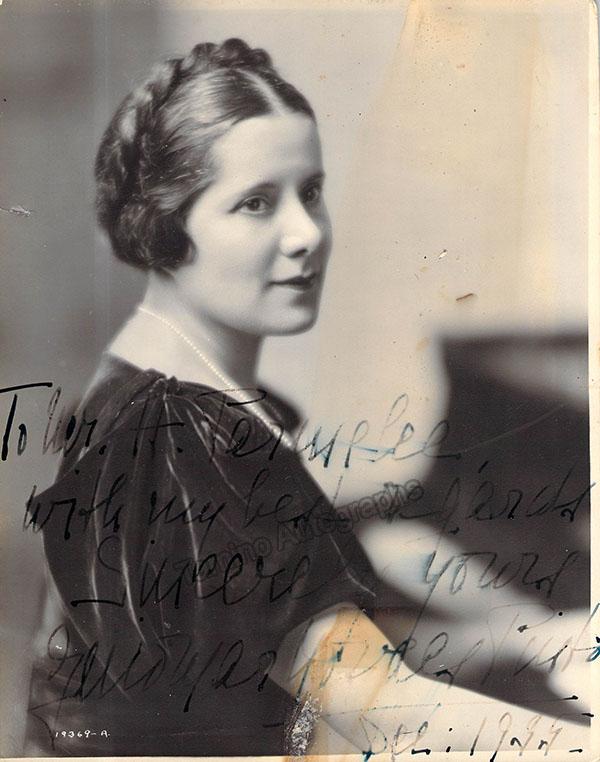 To Mr. H. Parmelee
with my best regards
Sincerely Yours
Guiomar Novaes Pinto
Dec. 1934
Tamino Autographs
19369-A.